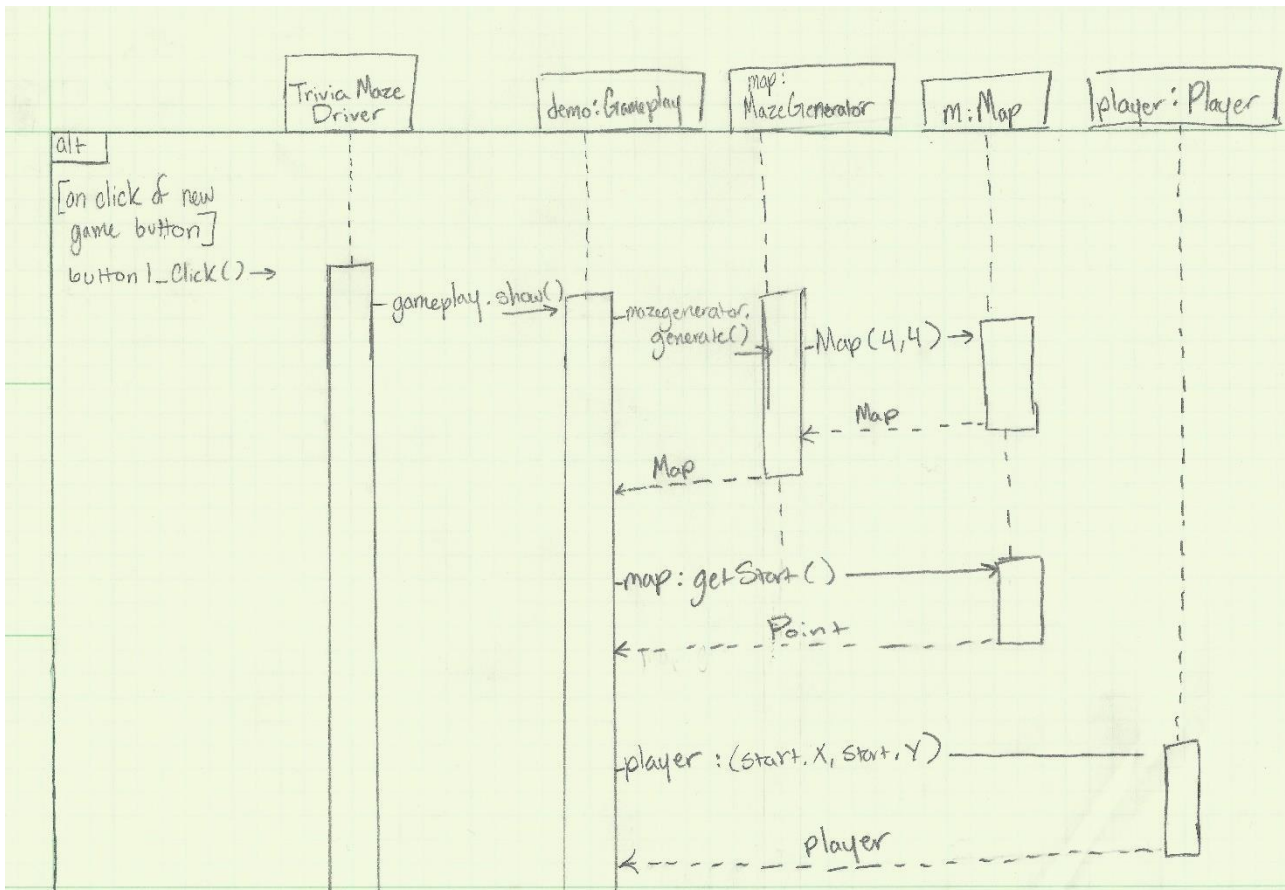 Trivia Maze
Driver
demo:Gameplay
map:
MazeGenerator
m:Map
player:Player
alt
[on click of new
game button]
button1_Click() →
gameplay.show()
mazegenerator.
generate()
Map(4,4) →
Map
Map
map:getStart()
Point
player:(start.X, start.Y)
player